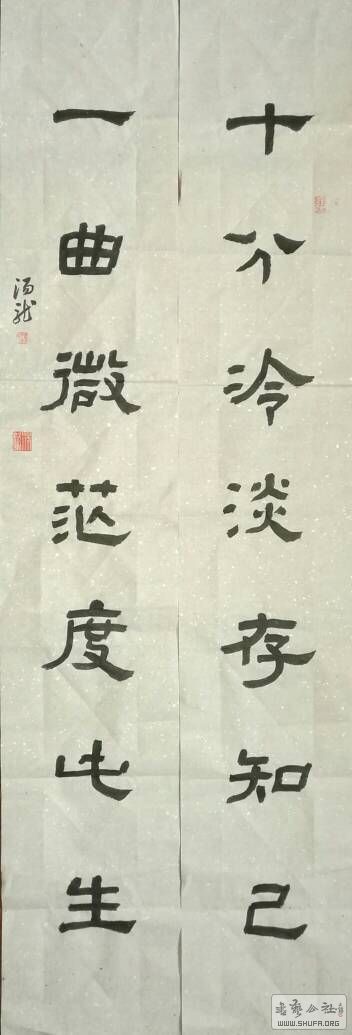 十分冷淡存知己
一曲微茫度此生
湯龍
书艺公社
WWW.SHUFA.ORG